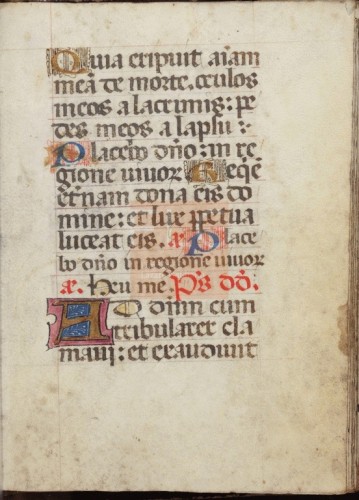 Quia eripuit aīam
meā de morte. oculos
meos a lacrimis: pe
des meos a lapsu:
Placebo dño: in re
gione viuor Requiē
eternam dona eis do
mine: et lux ppetua
luceat eis. añ. Place
bo dño in regione viuor
añ. Heu me. Ps dd.
AD dnm cum
tribularer cla
maui: et exaudiuit